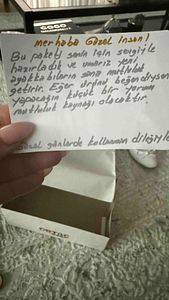 Merhaba Güzel İnsan!
Bu paketi senin için sevgiyle
hazırladık ve umarız yeni
ayakkabıların sana mutluluk
getirir. Eğer ürünü beğendiysen
yapacağın küçük bir yorum
mutluluk kaynağı olacaktır.
Güzel günlerde kullanman dileğiyle